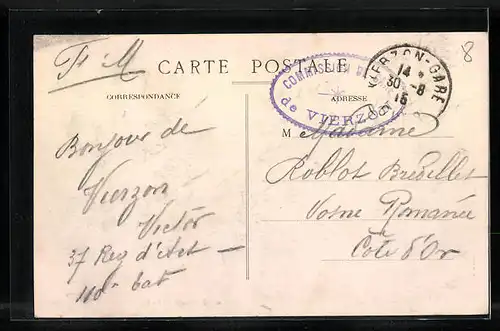 F M
CARTE POSTALE
CORRESPONDANCE
ADRESSE
COMMISSION DE
de VIERZON
VIERZON-GARE
14 *
30 - 8
15
8
Bonjour de
Vierzon
Victor
37 Reg d'Art
110e bat
M Madame
Roblot Bredillet
Vosne Romanée
Côte d'Or